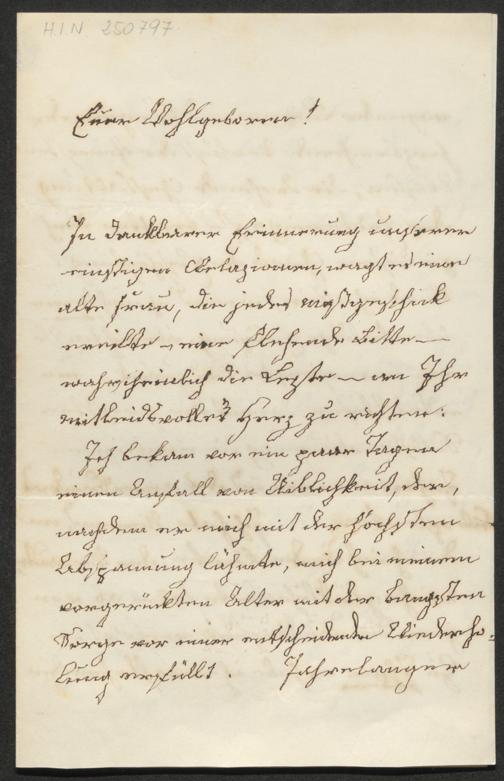 H.I.N. 250797.
Euer Wohlgeboren!
In dankbarer Erinnerung unserer
einstigen Relazionen, wagt es eine
alte Frau, die jedes Mißgeschik
ereilte – eine flehende Bitte –
wahrscheinlich die Lezte – an Ihr
mitleidsvolles Herz zu richten:
Ich bekam vor ein paar Tagen
einen Anfall von Üblichkeit, der,
nachdem er mich mit der höchsten
Abspannung lähmte, mich bei meinem
vorgerückten Alter mit der bangsten
Sorge vor einer entscheidenden Wiederho-
lung erfüllt. Jahrelanger